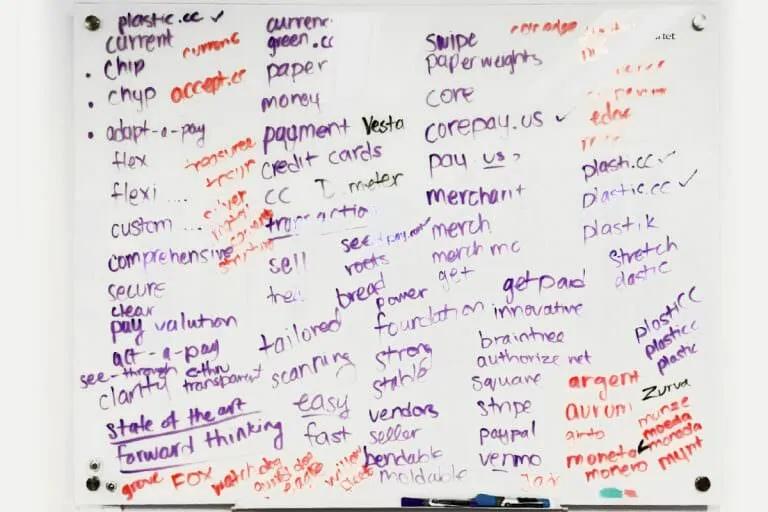 plastic.cc ✓
current
current
chip
chyp
accept.cc
adapt-a-pay
flex
flexi ...
custom ...
comprehensive
secure
clear
pay valution
act-a-pay
see-through
c-thru
clarity
transparent
state of the art
forward thinking
grove
FOX
watchdog
current
green.cc
paper
money
payment
Vesta
credit cards
CC
meter
transaction
sell
see
roots
bread
tailored
scanning
easy
fast
power
foundation
strong
stable
vendors
seller
bendable
moldable
swipe
paperweights
core
corepay.us ✓
pay us
merchant
merch
merch mc
get
get paid
innovative
braintree
authorize net
square
stripe
paypal
venmo
edge
plash.cc ✓
plastic.cc ✓
plastik
stretch
elastic
plasticc
plasticc
plastic
argent
Zurva
aurum
munze
moeda
moneta
moneda
monero
mynt